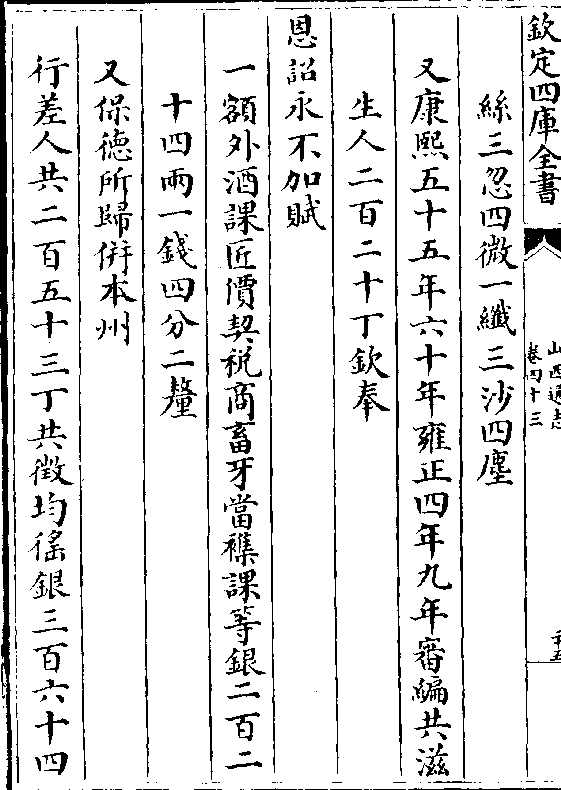 欽定四庫全書
山西通志
卷四十三
二十五
絲三忽四微一纖三沙四塵
又康熙五十五年六十年雍正四年九年審編共滋
生人二百二十丁欽奉
恩詔永不加賦
一額外酒課匠價契稅商畜牙當襍課等銀二百二
十四兩一錢四分二釐
又保德所歸併本州
行差人共二百五十三丁共徵均徭銀三百六十四